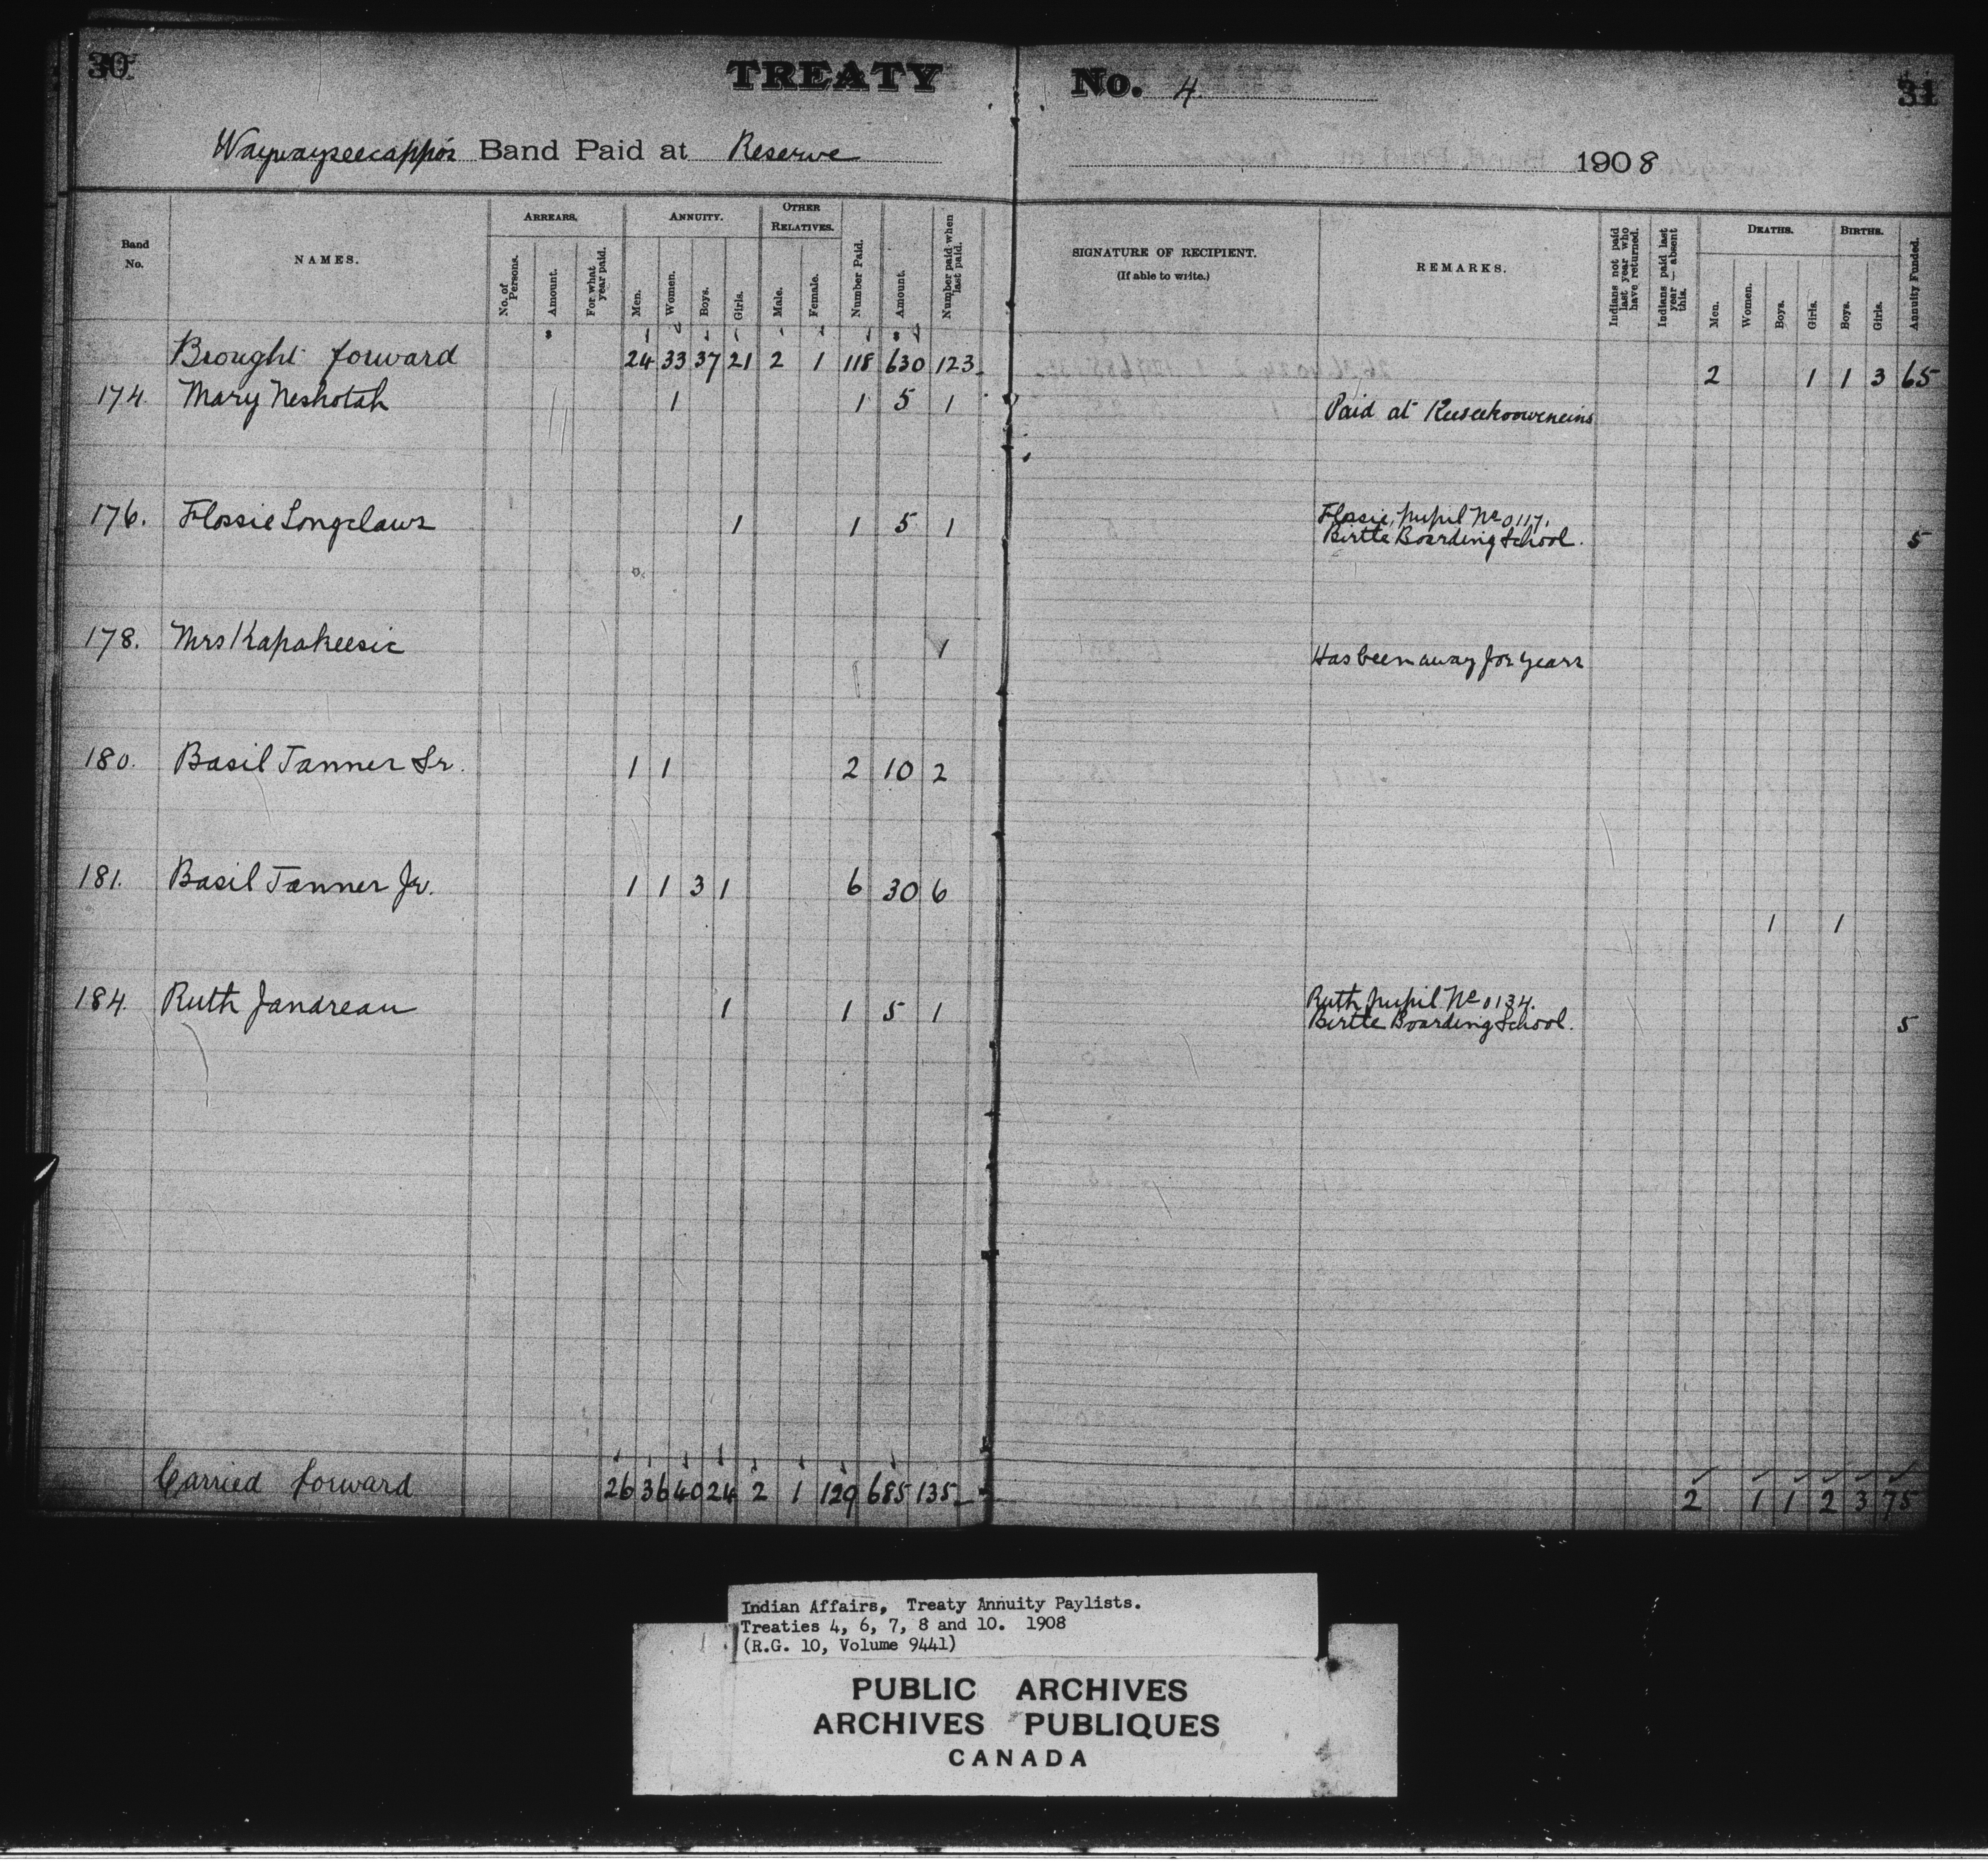 30
TREATY
No. 4
31
Waywayseecappo's Band Paid at Reserve
1908
Band No.
NAMES.
ARREARS.
No. of Persons.
Amount.
For what year paid.
ANNUITY.
Men.
Women.
Boys.
Girls.
OTHER RELATIVES.
Male.
Female.
Number Paid.
Amount.
Number paid when last paid.
SIGNATURE OF RECIPIENT.
(If able to write.)
REMARKS.
Indians not paid last year who have returned.
Indians paid last year — absent this.
DEATHS.
Men.
Women.
Boys.
Girls.
BIRTHS.
Boys.
Girls.
Annuity Funded.
Brought forward 24 33 37 21 2 1 118 630 123 2 1 1 3 65
174 Mary Neshotah 1 1 5 1 Paid at Keeseekooweneins
176. Flossie Longclaws 1 1 5 1 Flossie, pupil No 0117.
Birtle Boarding School. 5
178. Mrs Kapakeesic 1 Has been away for years
180. Basil Tanner Sr. 1 1 2 10 2
181. Basil Tanner Jr. 1 1 3 1 6 30 6
1 1
184. Ruth Jandreau 1 1 5 1 Ruth pupil No 0134.
Birtle Boarding School. 5
Carried forward 26 36 40 24 2 1 129 685 135 2 1 1 2 3 75
Indian Affairs, Treaty Annuity Paylists.
Treaties 4, 6, 7, 8 and 10. 1908
(R.G. 10, Volume 9441)
PUBLIC ARCHIVES
ARCHIVES PUBLIQUES
CANADA